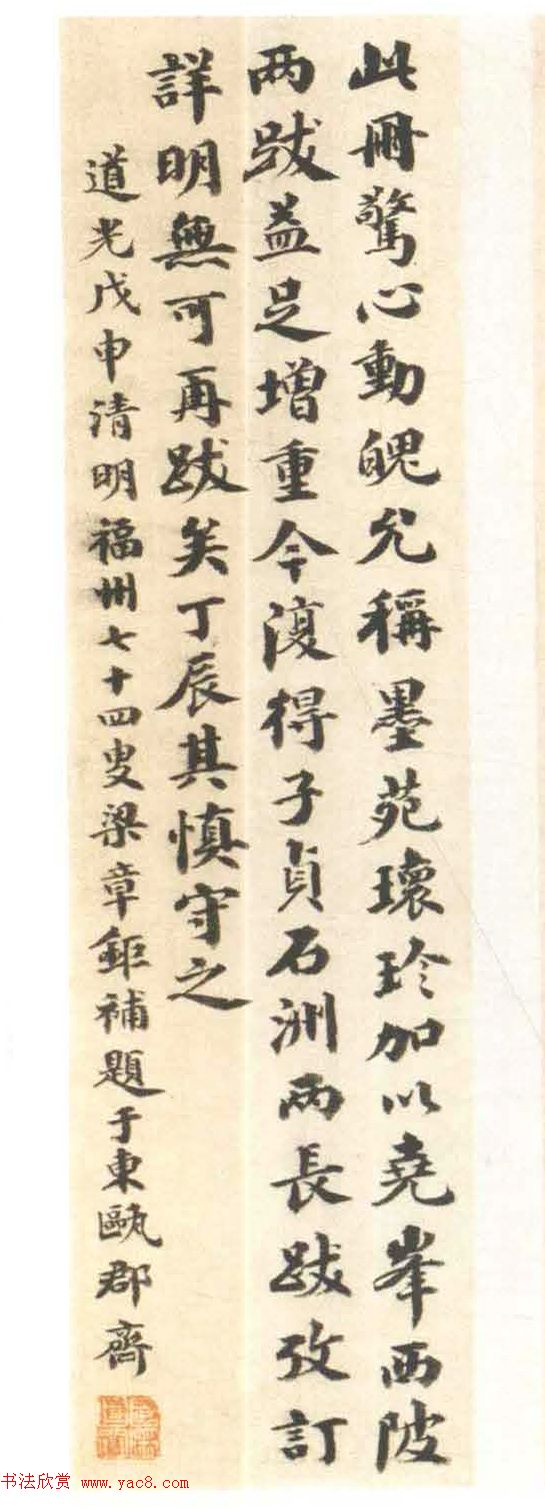 此冊驚心動魄允稱墨苑瓌珍加以堯峯西陂
两跋益足增重今復得子貞石洲兩長跋攷訂
詳明無可再跋矣丁辰其慎守之
道光戊申清明福州七十四叟梁章鉅補題于東甌郡齋
书法欣赏 www.yac8.com